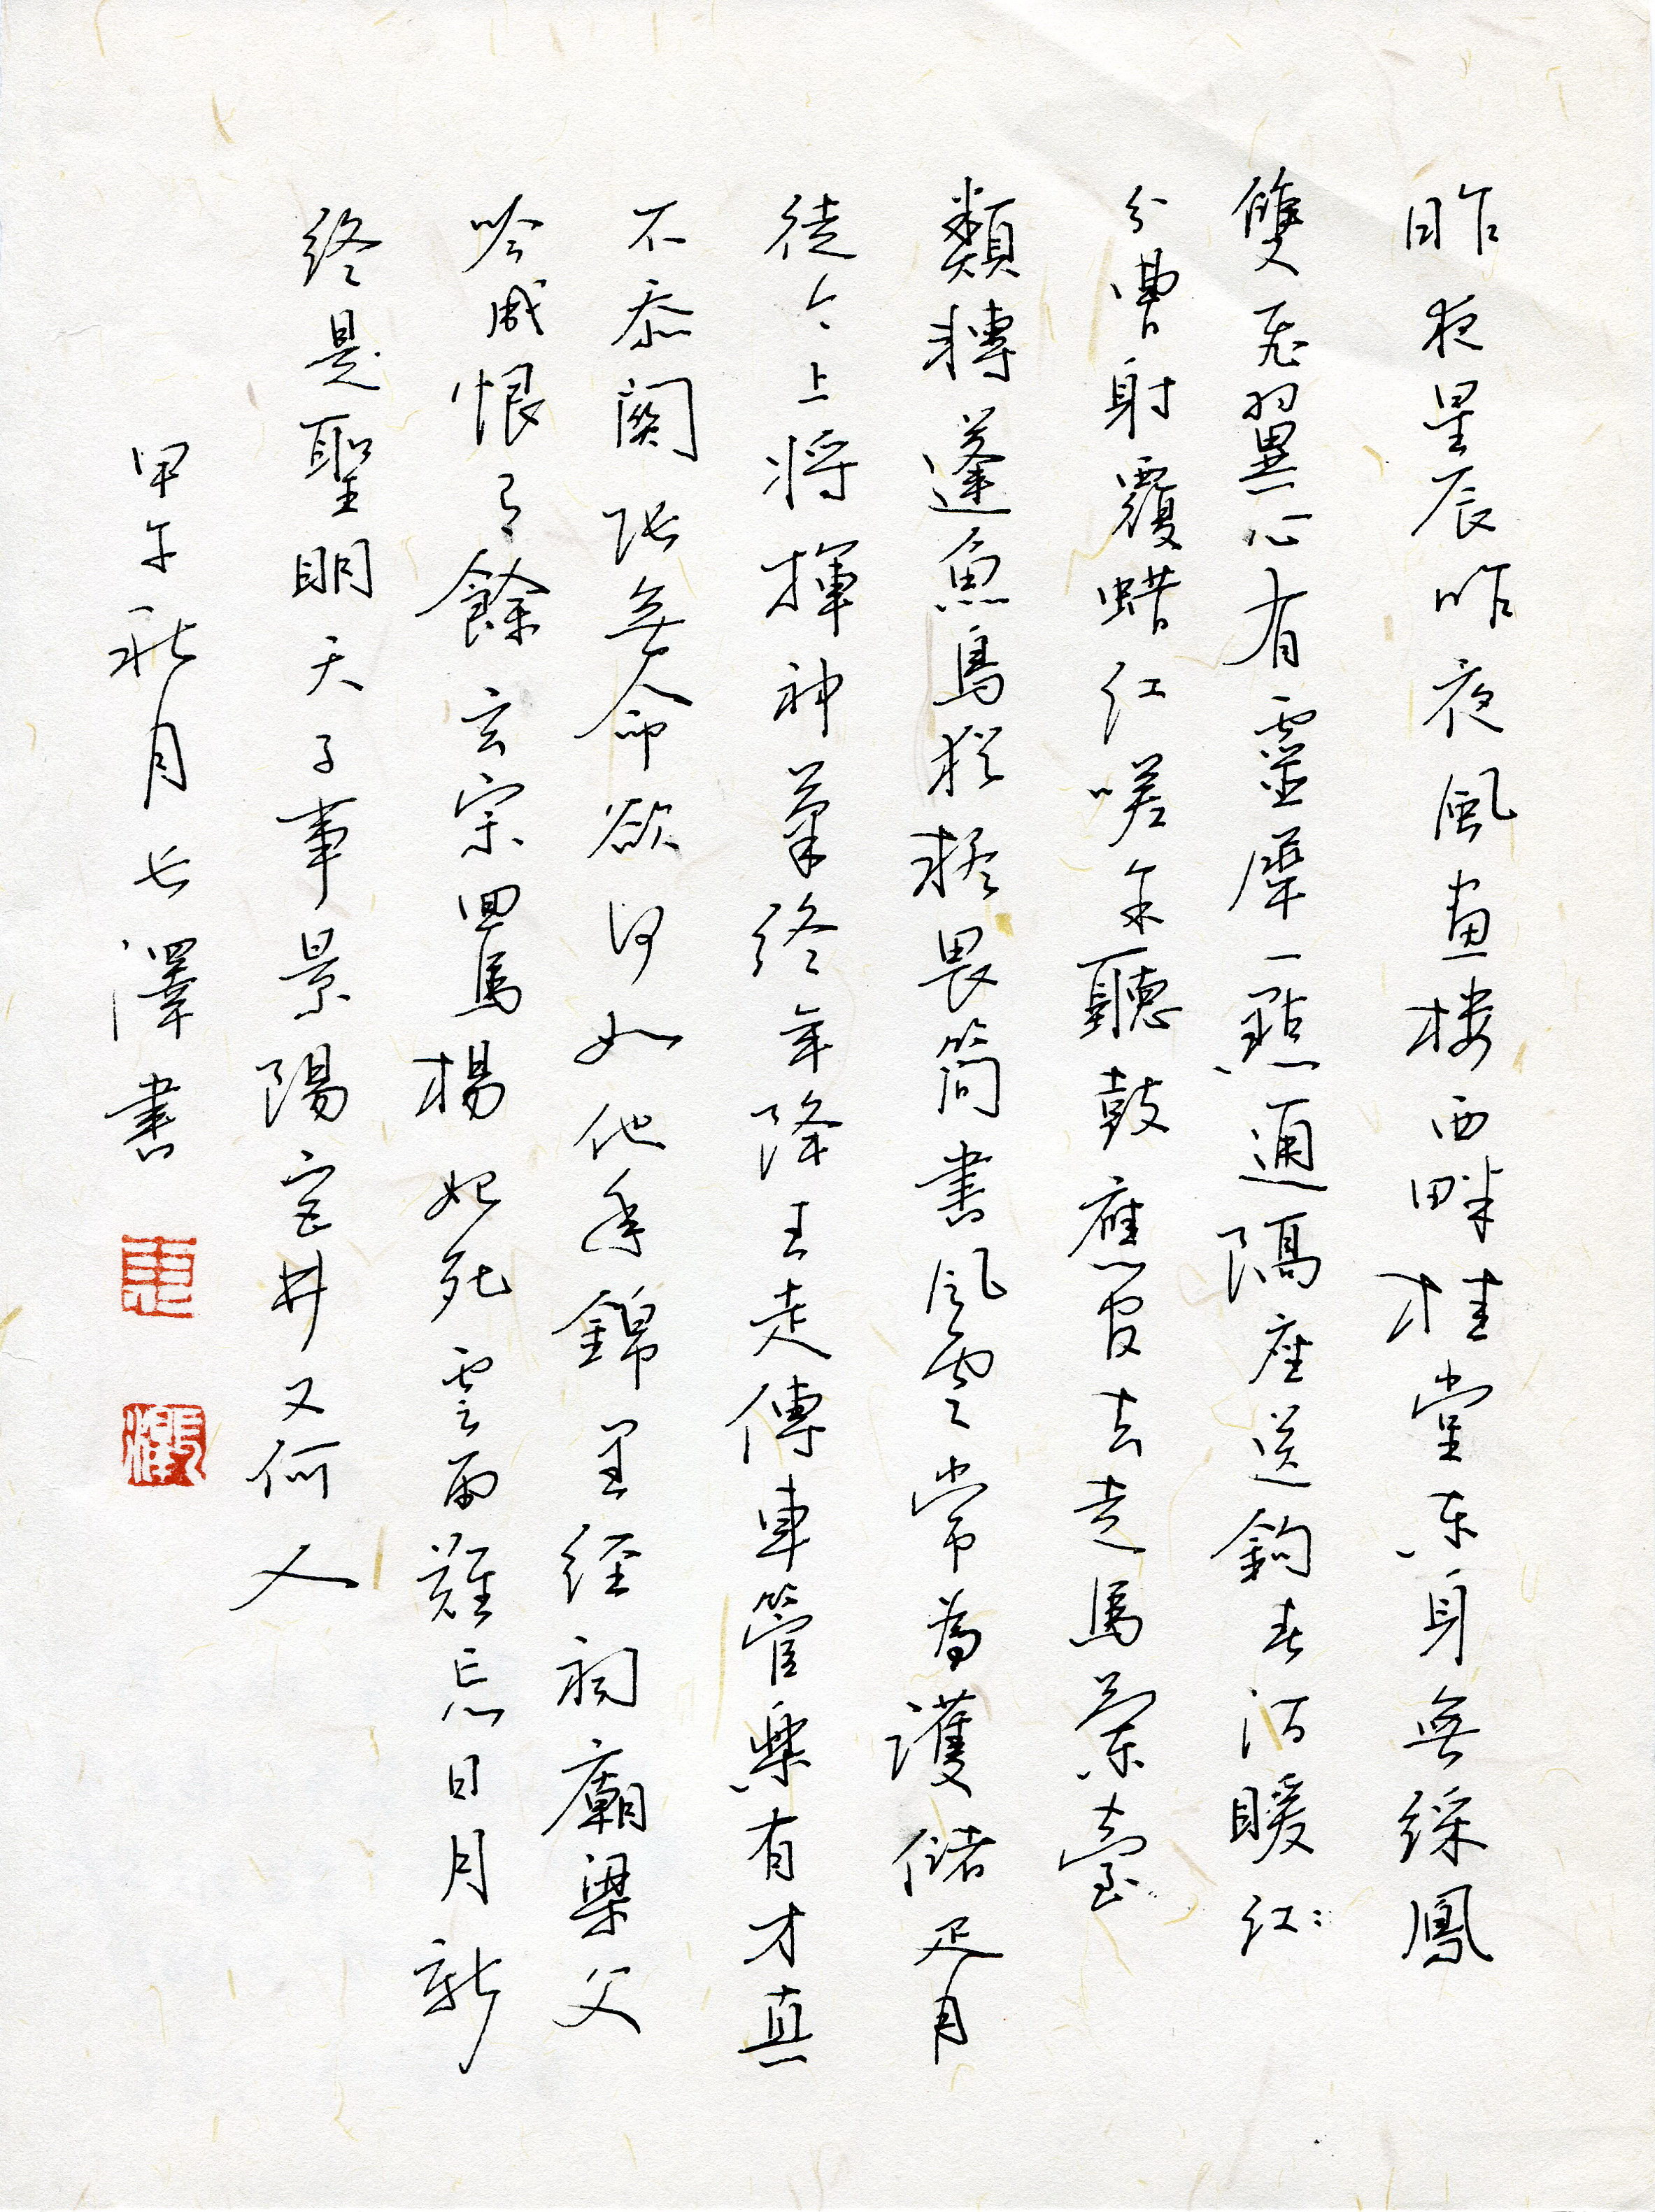 昨夜星辰昨夜風画楼西畔桂堂东身無綵鳳
雙飛翼心有靈犀一點通隔座送鉤春酒暖红
分曹射覆蜡红嗟余聽鼓應官去走馬蘭臺
類轉蓬魚鳥猶疑畏简書風雲常為護储胥
徒令上将揮神筆终年降王走傳車管樂有才真
不忝関張無命欲何如他年錦里经祠廟梁父
吟成恨有餘玄宗回馬楊妃死雲雨難忘日月新
终是聖明天子事景陽宮井又何人
甲午秋月长澤書